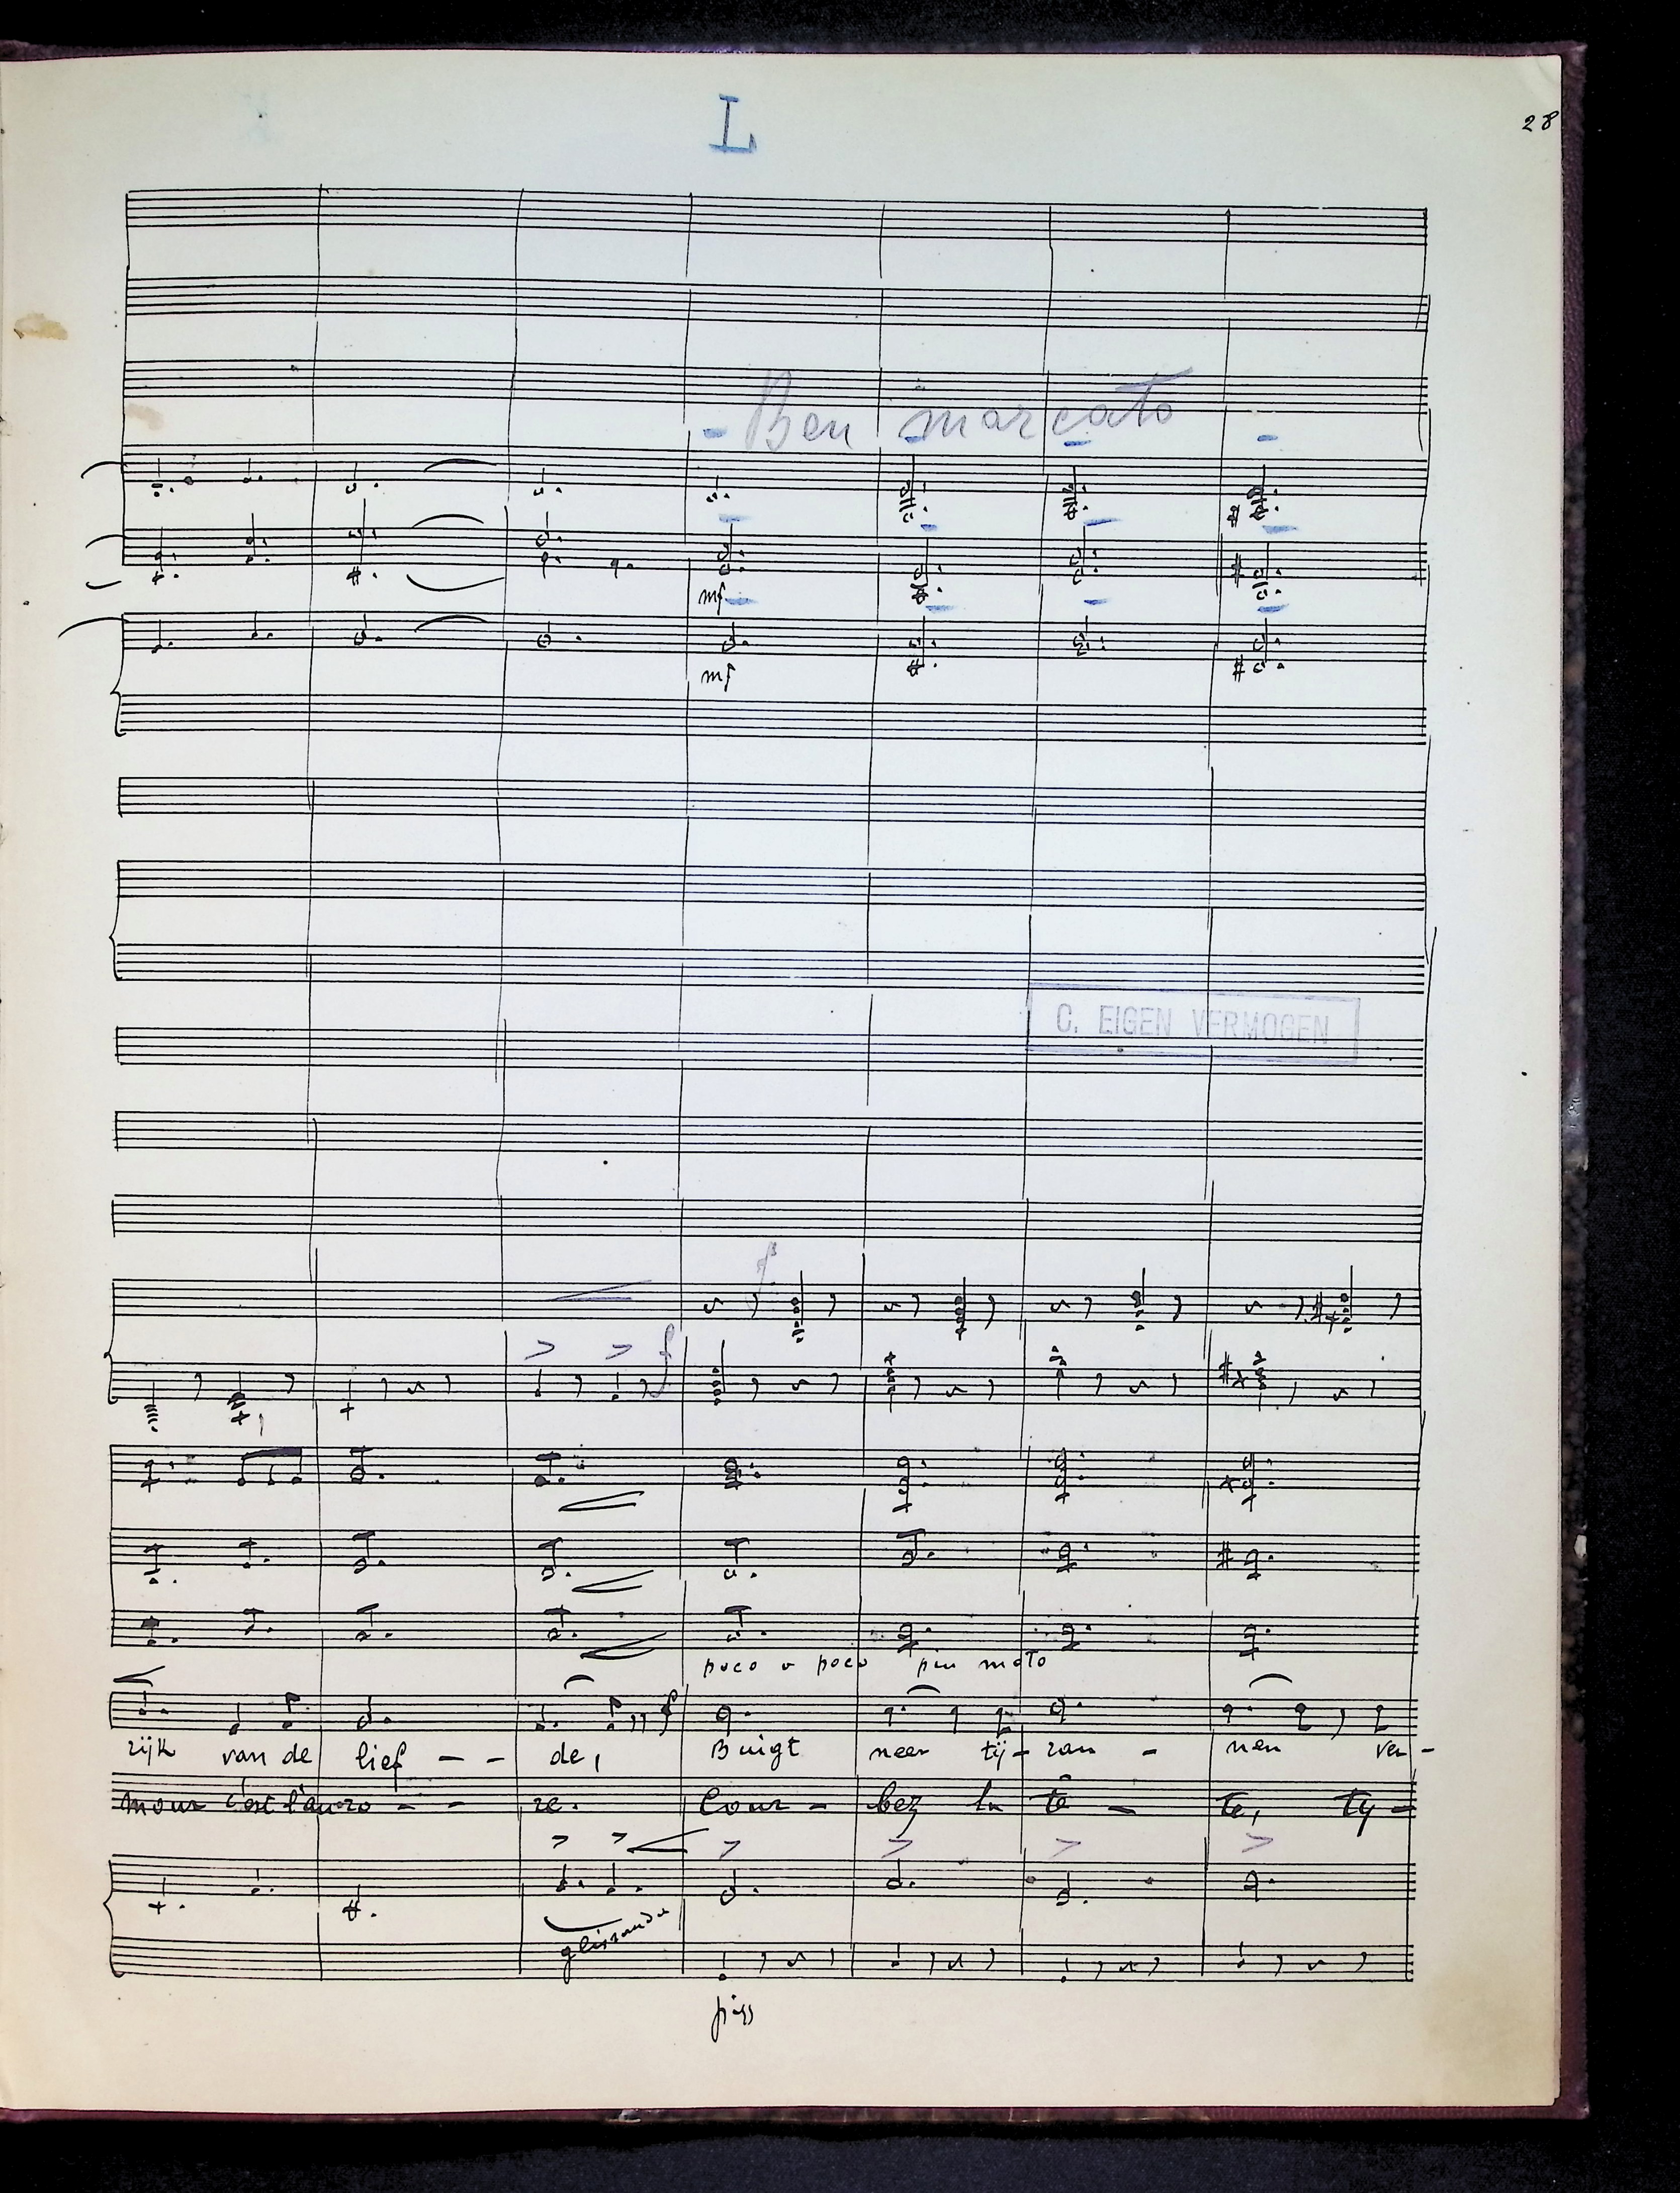 L
28
Ben marcato
mf
mf
C. EIGEN VERMOGEN
f
f
poco a poco piu moto
f
rijk van de lief - - de, Buigt neer tij - ran - nen ver -
mour c'est l'auro - - re. Cour - bez la tê - te, ty -
glissando